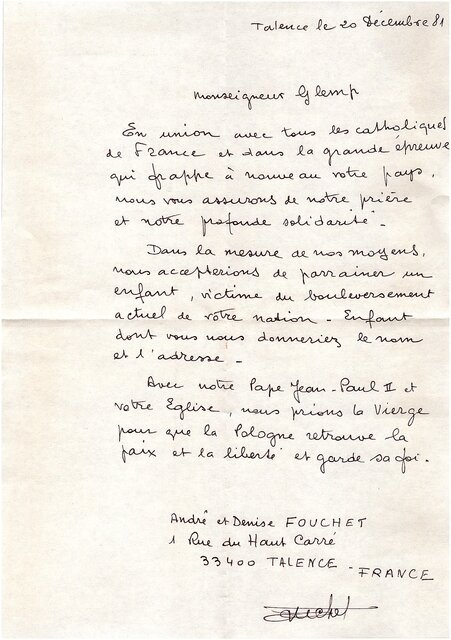 Talence le 20 Décembre 81
Monseigneur Glemp
En union avec tous les catholiques
de France et dans la grande épreuve
qui frappe à nouveau votre pays,
nous vous assurons de notre prière
et notre profonde solidarité.
Dans la mesure de nos moyens,
nous accepterions de parrainer un
enfant, victime du bouleversement
actuel de votre nation - Enfant
dont vous nous donneriez le nom
et l'adresse -
Avec notre Pape Jean-Paul II et
votre Eglise, nous prions la Vierge
pour que la Pologne retrouve la
paix et la liberté et garde sa foi.
André et Denise FOUCHET
1 Rue du Haut Carré
33400 TALENCE - FRANCE
Fouchet